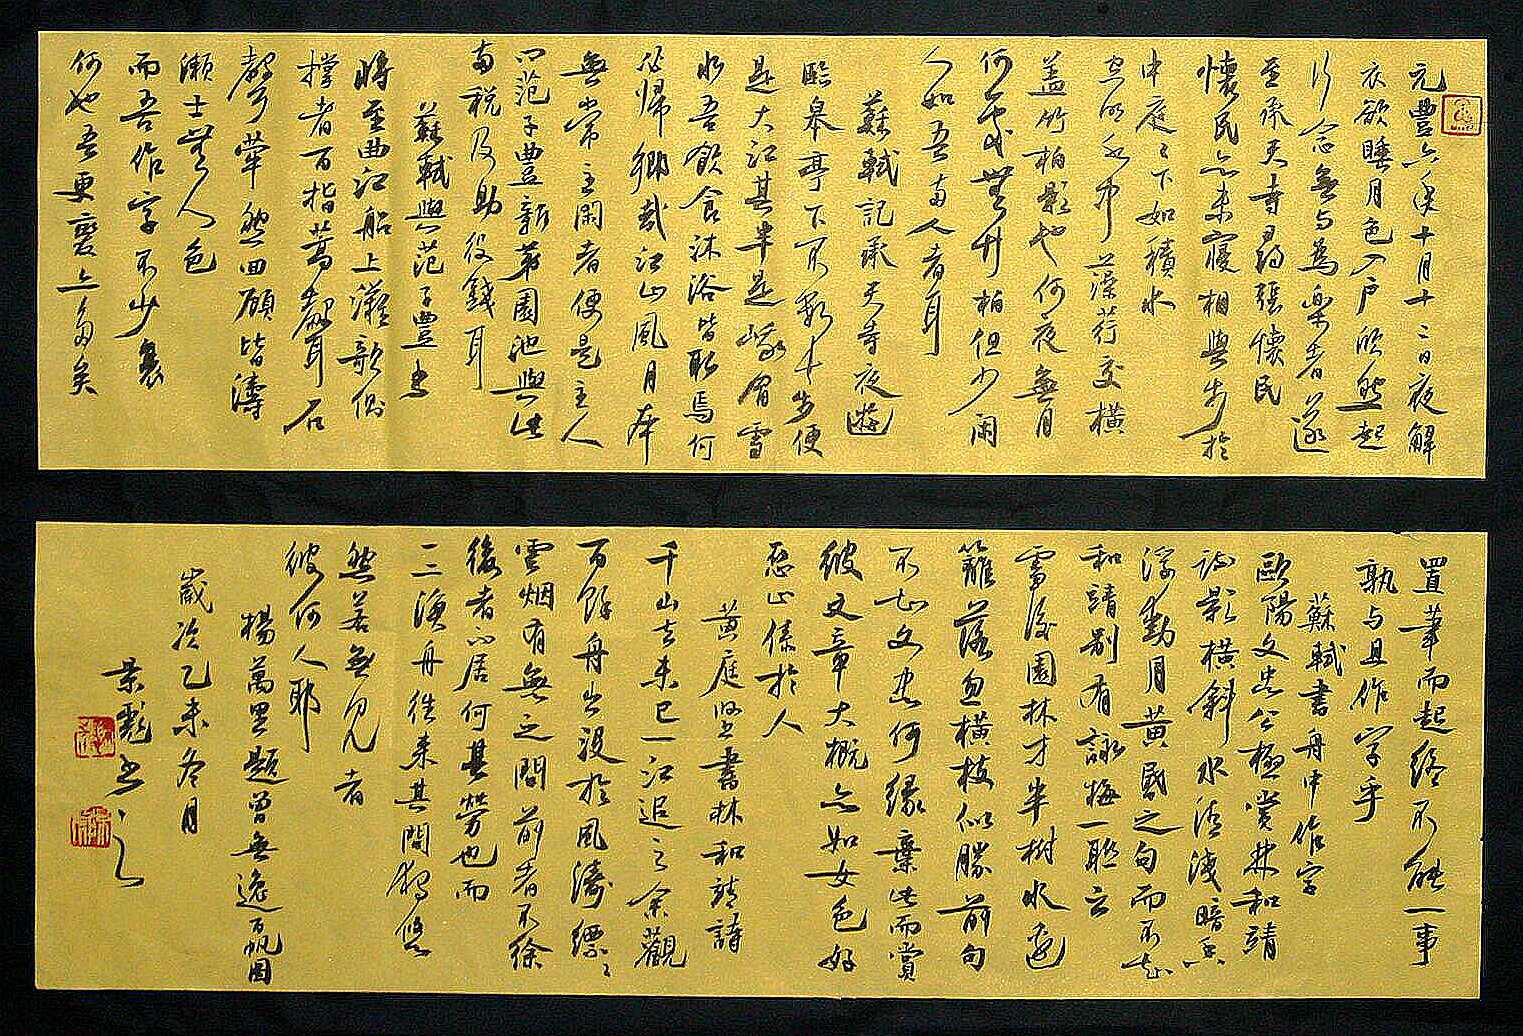 元豐六年十月十二日夜解
衣欲睡月色入戶欣然起
行念無与為樂者遂
至承天寺尋張懷民
懷民亦未寢相與步於
中庭〻下如積水
空明水中藻荇交橫
盖竹柏影也何夜無月
何處無竹柏但少閑
人如吾兩人者耳
蘇軾記承天寺夜遊
臨皋亭下不數十步便
是大江其半是峨眉雪
水吾飲食沐浴皆取焉何
必歸鄉哉江山風月本
無常主閑者便是主人
問范子豐新第園池與此
兩稅及助役錢耳
蘇軾與范子豐書
將至曲江船上灘欹側
撐者百指篙聲石
聲犖然四顧皆濤
瀨士無人色
而吾作字不少衰
何也吾更變亦多矣
置筆而起終不能一事
孰与且作字乎
蘇軾書舟中作字
歐陽文忠公極賞林和靖
疏影橫斜水清淺暗香
浮動月黃昏之句而不知
和靖别有詠梅一聯云
雪後園林才半樹水邊
籬落忽橫枝似勝前句
不知文忠何緣棄此而賞
彼文章大概亦如女色好
惡止係於人
黃庭堅書林和靖詩
千山去未已一江追之余觀
百餘舟出沒於風濤縹〻
雲烟有無之間前者不徐
後者不居何其勞也而
一二漁舟往來其間獨悠
然若無見者
彼何人耶
楊萬里題曾無逸百帆圖
歲次乙未冬月
景彪書